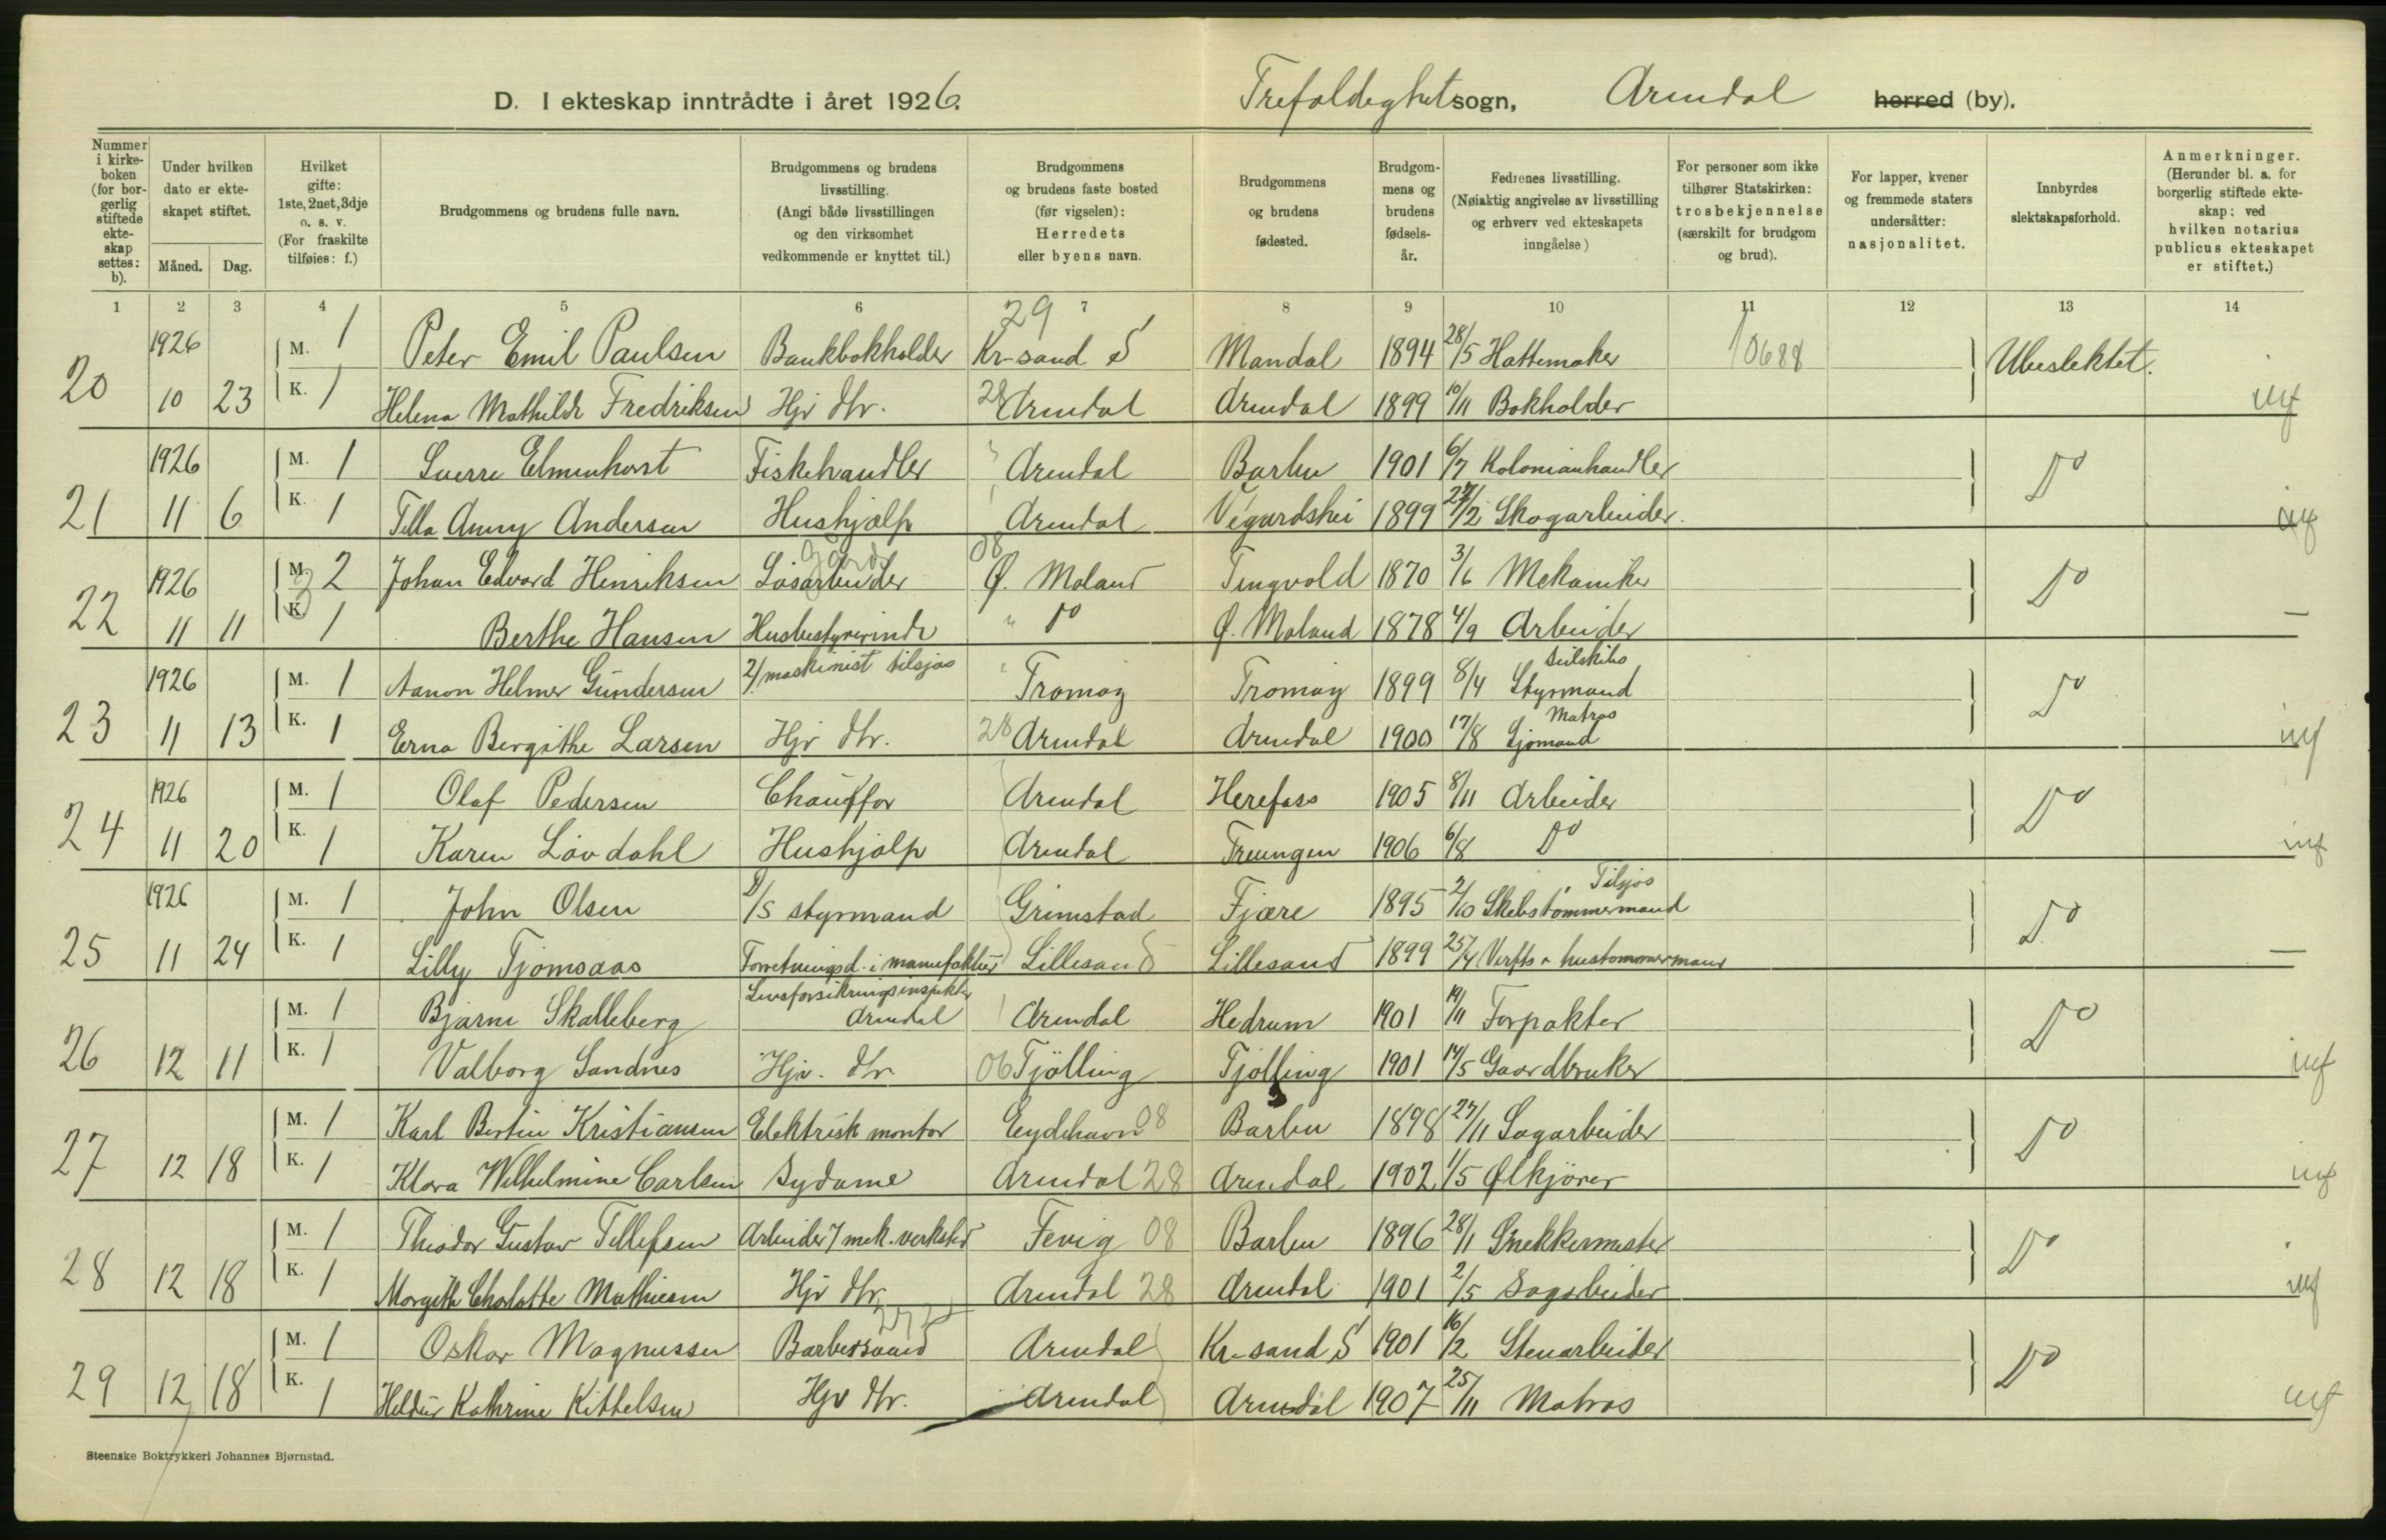 D. I ekteskap inntrådte i året 1926. Trefoldeghetsogn, Arendal herred (by).
Nummer i kirkeboken (for borgerlig stiftede ekteskap settes: b). Under hvilken dato er ekteskapet stiftet. Måned. Dag. Hvilket gifte: 1ste, 2net, 3dje o. s. v. (For fraskilte tilføies: f.) Brudgommens og brudens fulle navn. Brudgommens og brudens livsstilling. (Angi både livsstillingen og den virksomhet vedkommende er knyttet til.) Brudgommens og brudens faste bosted (før vigselen): Herredets eller byens navn. Brudgommens og brudens fødested. Brudgommens og brudens fødselsår. Fedrenes livsstilling. (Nøiaktig angivelse av livsstilling og erhverv ved ekteskapets inngåelse) For personer som ikke tilhører Statskirken: trosbekjennelse (særskilt for brudgom og brud). For lapper, kvener og fremmede staters undersåtter: nasjonalitet. Innbyrdes slektskapsforhold. Anmerkninger. (Herunder bl. a. for borgerlig stiftede ekteskap: ved hvilken notarius publicus ekteskapet er stiftet.)
1 2 3 4 5 6 7 8 9 10 11 12 13 14
20 1926 M. 1 Peter Emil Paulsen Bankbokholder 29 Kr-sand S Mandal 1894 28/5 Hattemaker 10688 Ubeslektet.
10 23 K. 1 Helena Mathilde Fredriksen Hjv dtr. 28 Arendal Arendal 1899 10/11 Bokholder
21 1926 M. 1 Sverre Elmenhorst Fiskehandler Arendal Barbu 1901 6/7 Kolonianhandler Do
11 6 K. 1 Tella Anny Andersen Hushjælp Arendal Vegardshei 1899 27/2 Skogarbeider.
22 1926 M. 2 Johan Edvard Henriksen Løsarbeider 08 Ø. Moland Tingvold 1870 3/6 Mekaniker Do
11 11 K. 1 Berthe Hansen Husbestyrerinde " Do Ø. Moland 1878 4/9 Arbeider
23 1926 M. 1 Aanon Helmer Gundersen 2/ maskinist tilsjøs Tromøy Tromøy 1899 8/4 Styrmand Seilskibs Do
11 13 K. 1 Erna Bergithe Larsen Hjv dtr. 28 Arendal Arendal 1900 17/8 Sjømand Matros
24 1926 M. 1 Olaf Pedersen Chauffør Arendal Herefoss 1905 8/11 Arbeider Do
11 20 K. 1 Karen Løvdahl Hushjælp Arendal Treungen 1906 6/8 Do
25 1926 M. 1 John Olsen D/S styrmand Grimstad Fjære 1895 2/10 Skibstømmermand Tilsjøs Do
11 24 K. 1 Lilly Tjomsaas Forretningsd. i manufaktur Lillesand Lillesand 1899 25/4 Verfts- hustømmermann
26 M. 1 Bjarne Skalleberg Livsforsikringsinspektør Arendal Arendal Hedrum 1901 19/11 Forpakter Do
12 11 K. 1 Valborg Sandnes Hjv. dtr 06 Tjölling Tjölling 1901 14/5 Gaardbruker
27 M. 1 Karl Bertin Kristiansen Elektrisk montør Eydehavn 08 Barbu 1898 27/11 Sagarbeider Do
12 18 K. 1 Klara Wilhelmine Carlsen Sydame Arendal 28 Arendal 1902 1/5 Ølkjører
28 M. 1 Theodor Gustav Tellefsen Arbeider / mek. verksted Fevig 08 Barbu 1896 28/11 Snekkermester Do
12 18 K. 1 Margith Charlotte Mathiesen Hjv dtr Arendal 28 Arendal 1901 2/5 Sagarbeider
29 M. 1 Oskar Magnussen Barbersvend Arendal Kr-sand S 1901 16/2 Stenarbeider Do
12 18 K. 1 Heldur Kathrine Kittelsen Hjv dtr. Arendal Arendal 1907 25/11 Matros
Steenske Boktrykkeri Johannes Bjørnstad.